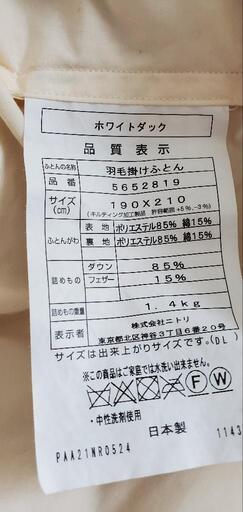 ホワイトダック
品質表示
ふとんの名称 羽毛掛けふとん
品番 5652819
サイズ(cm) 190X210
(キルティング加工製品 許容範囲+5%,-3%)
ふとんがわ 表地 ポリエステル85% 綿15%
裏地 ポリエステル85% 綿15%
詰めもの ダウン 85%
フェザー 15%
詰めもの重量 1.4kg
表示者 株式会社ニトリ
東京都北区神谷3丁目6番20号
サイズは出来上がりサイズです。(DL)
※この商品はご家庭では水洗いできません
F W
・中性洗剤使用
日本製
PAA21NR0524
1143